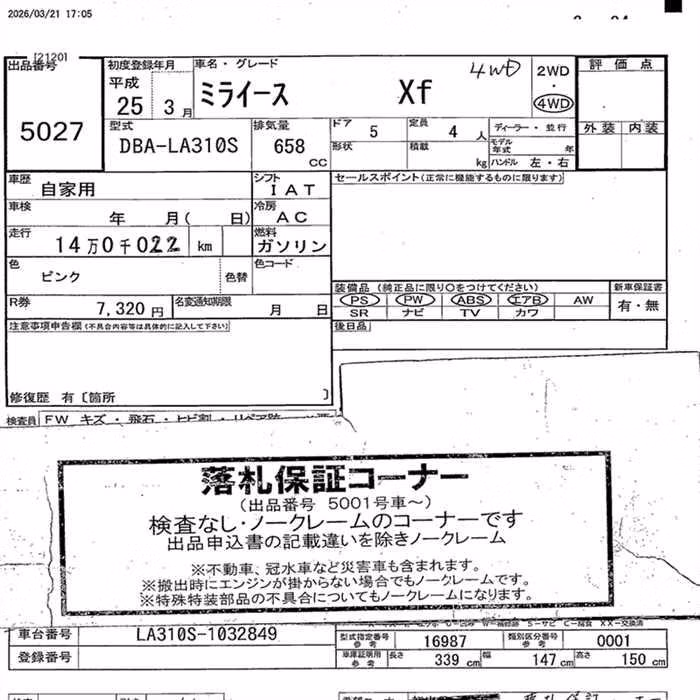 2026/03/21 17:05
[2120]
出品番号 初度登録年月 車名・グレード 4WD 2WD 評価点
平成 ・
25 3月 ミライース Xf 4WD
5027 型式 排気量 ドア 5 定員 4人 ディーラー・並行 外装 内装
DBA-LA310S 658 CC 形状 積載 kg モデル年式 年
ハンドル 左・右
車歴 自家用 シフト IAT セールスポイント(正常に機能するものに限ります)
車検 年 月( 日) 冷房 AC
走行 14万0千022 km 燃料 ガソリン
色 ピンク 色替 色コード
装備品 (純正品に限り○をつけてください) 新車保証書
R券 7,320円 名変通知期限 月 日 PS PW ABS エアB AW 有・無
SR ナビ TV カワ
注意事項申告欄(不具合内容等は具体的に記入して下さい) 後日品
修復歴 有〔箇所 〕
検査員 FW キズ・飛石・ヒビ割・リペア跡
落札保証コーナー
(出品番号 5001号車~)
検査なし・ノークレームのコーナーです
出品申込書の記載違いを除きノークレーム
※不動車、冠水車など災害車も含まれます。
※搬出時にエンジンが掛からない場合でもノークレームです。
※特殊特装部品の不具合についてもノークレームになります。
車台番号 LA310S-1032849 型式指定番号 参考 16987 類別区分番号 参考 0001
登録番号 車庫証明用 参考 長さ 339cm 幅 147cm 高さ 150cm